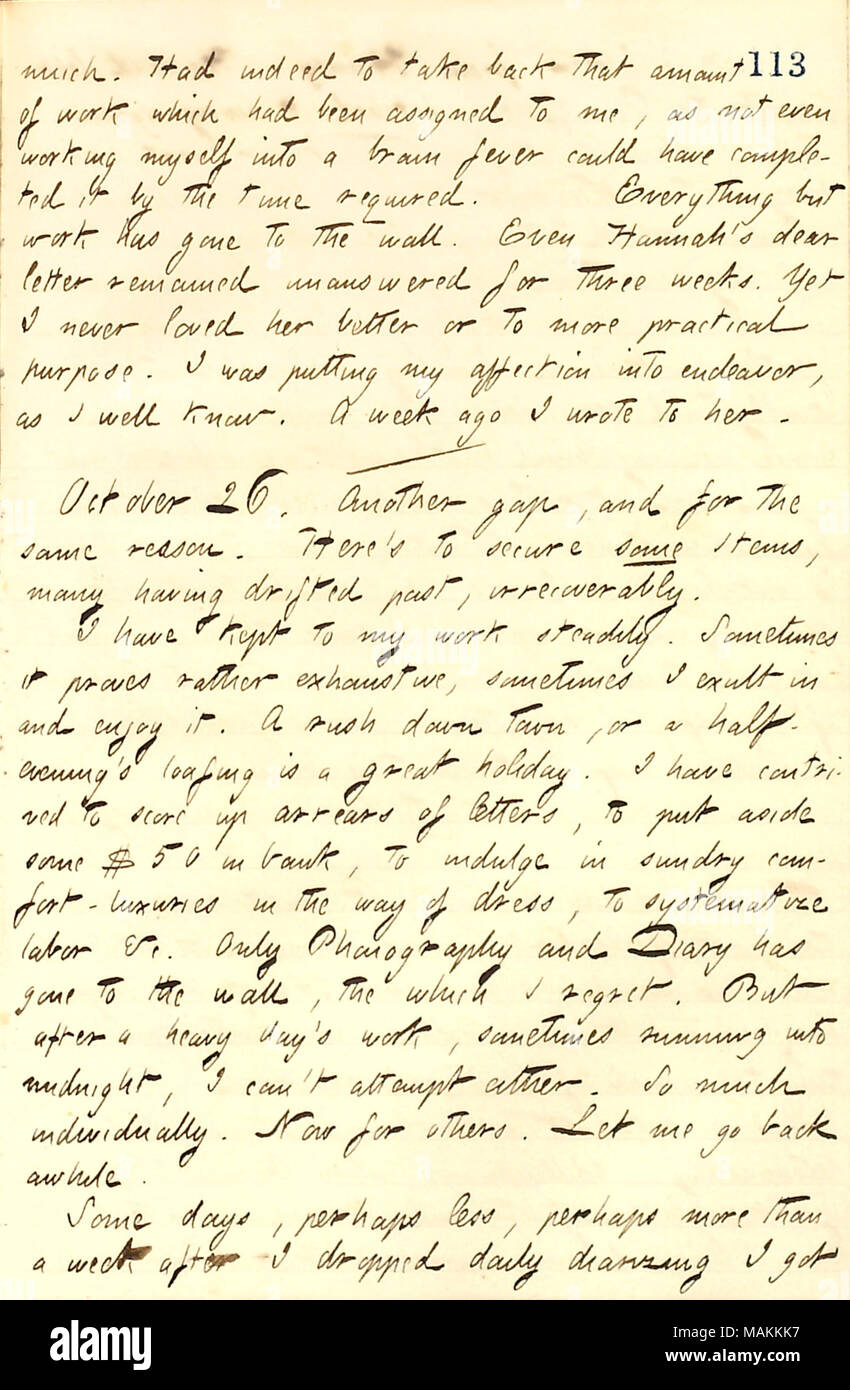 113
much. Had indeed to take back that amount
of work which had been assigned to me, as not even
working myself into a brain fever could have comple-
ted it by the time required. Everything but
work has gone to the wall. Even Hannah's dear
letter remained unanswered for three weeks. Yet
I never loved her better or to more practical
purpose. I was putting my affection into endeavor,
as I well know. A week ago I wrote to her.
October 26. Another gap, and for the
same reason. Here's to secure some items,
many having drifted past, irrecoverably.
I have kept to my work steadily. Sometimes
it proves rather exhaustive, sometimes I exult in
and enjoy it. A rush down town, or a half-
evening's loafing is a great holiday. I have contri-
ved to score up arrears of letters, to put aside
some $50 in bank, to indulge in sundry com-
fort-luxuries in the way of dress, to systematize
labor &c. Only Phonography and Diary has
gone to the wall, the which I regret. But
after a heavy day's work, sometimes running into
midnight, I can't attempt either. So much
individually. Now for others. Let me go back
awhile.
Some days, perhaps less, perhaps more than
a week after I dropped daily diarizing I got
alamy
Image ID: MAKKK7
www.alamy.com